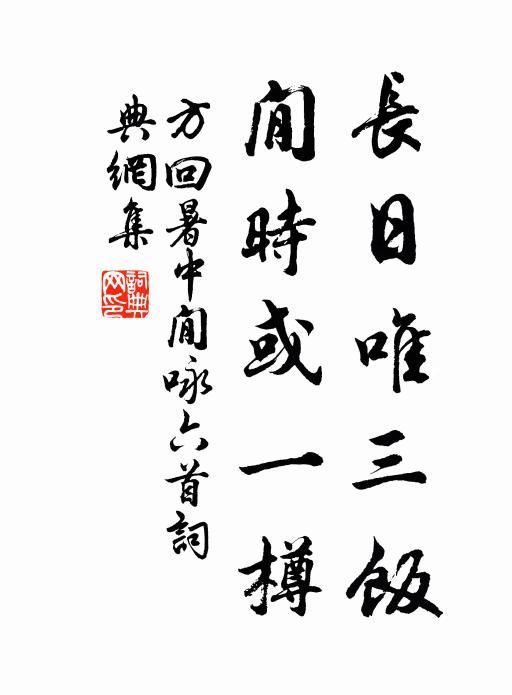 長日唯三飯
閒時或一樽
方回暑中閒咏六首詞
典網集
詞典
网印